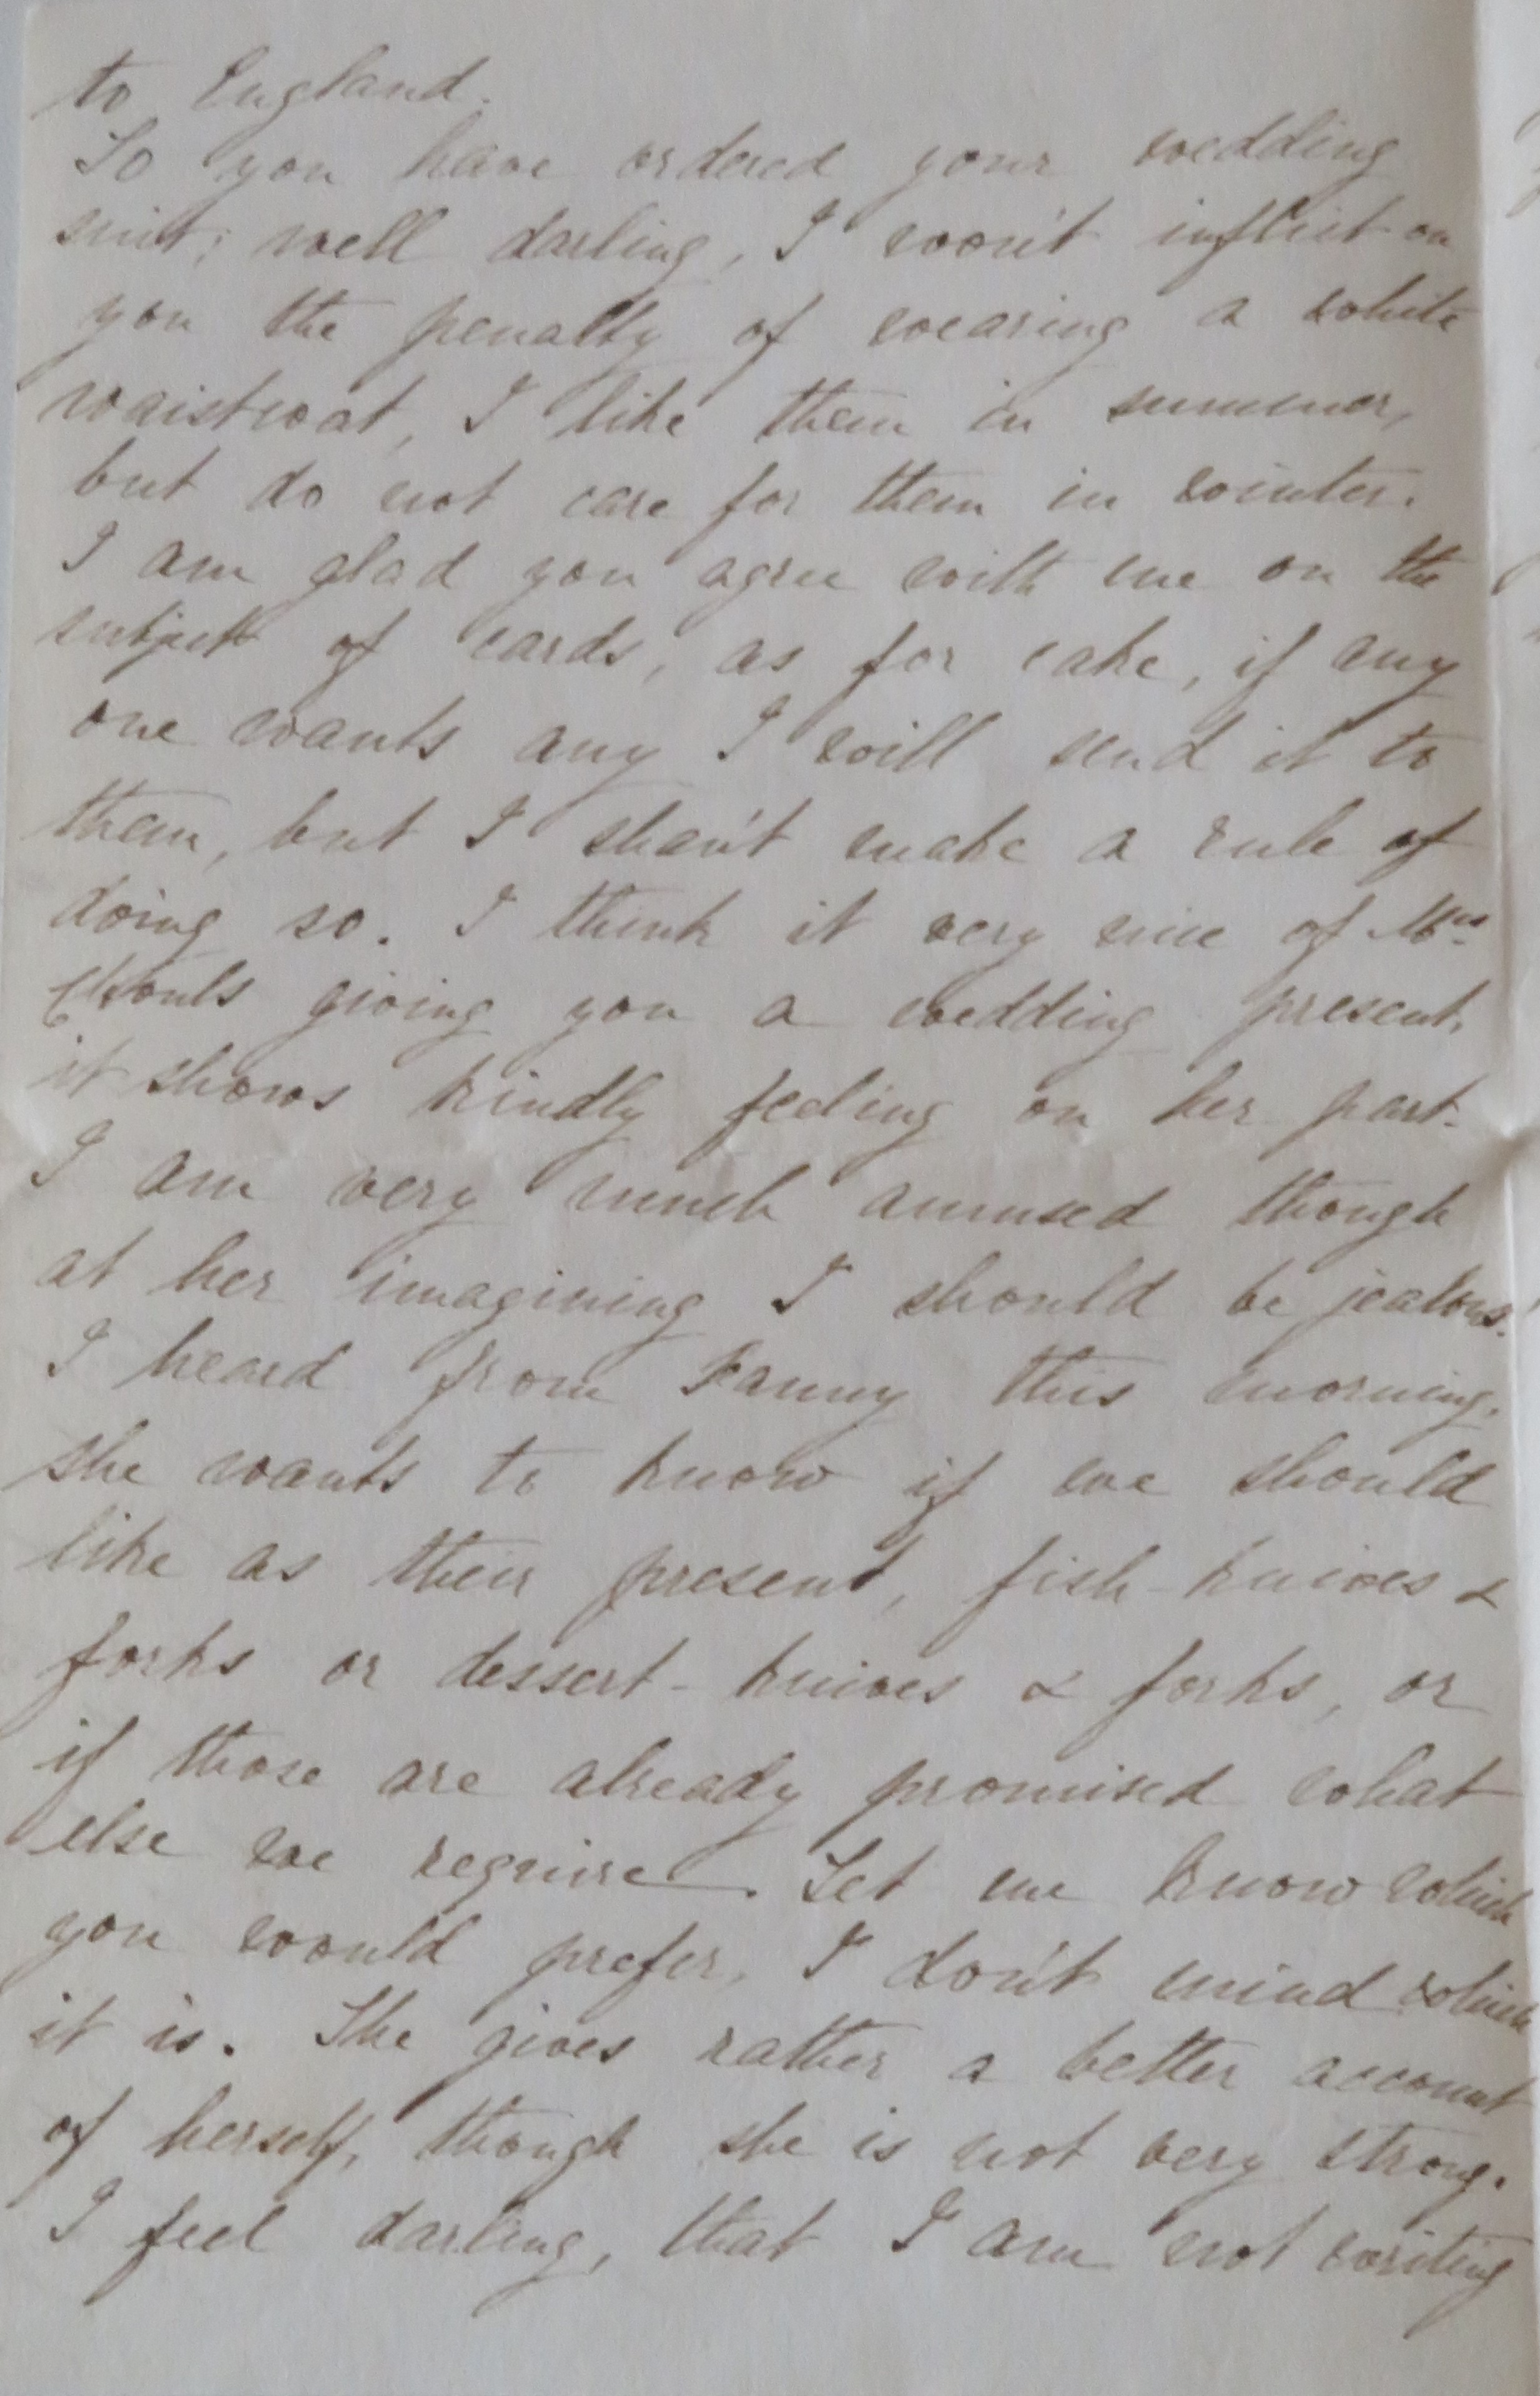 to England.
So you have ordered your wedding
suit; well darling, I won't inflict on
you the penalty of wearing a white
waistcoat, I like them in summer,
but do not care for them in winter.
I am glad you agree with me on the
subject of cards, as for cake, if any
one wants any I will send it to
them, but I shan't make a rule of
doing so. I think it very nice of Mrs.
giving you a wedding present,
it shows kindly feeling on her part.
I am very much amused though
at her imagining I should be jealous.
I heard from Fanny this morning,
she wants to know if we should
like as their present, fish-knives &
forks or dessert-knives & forks, or
if those are already promised what
else we require. Let me know which
you would prefer, I don't mind which
it is. She gives rather a better account
of herself, though she is not very strong.
I feel darling, that I am not writing